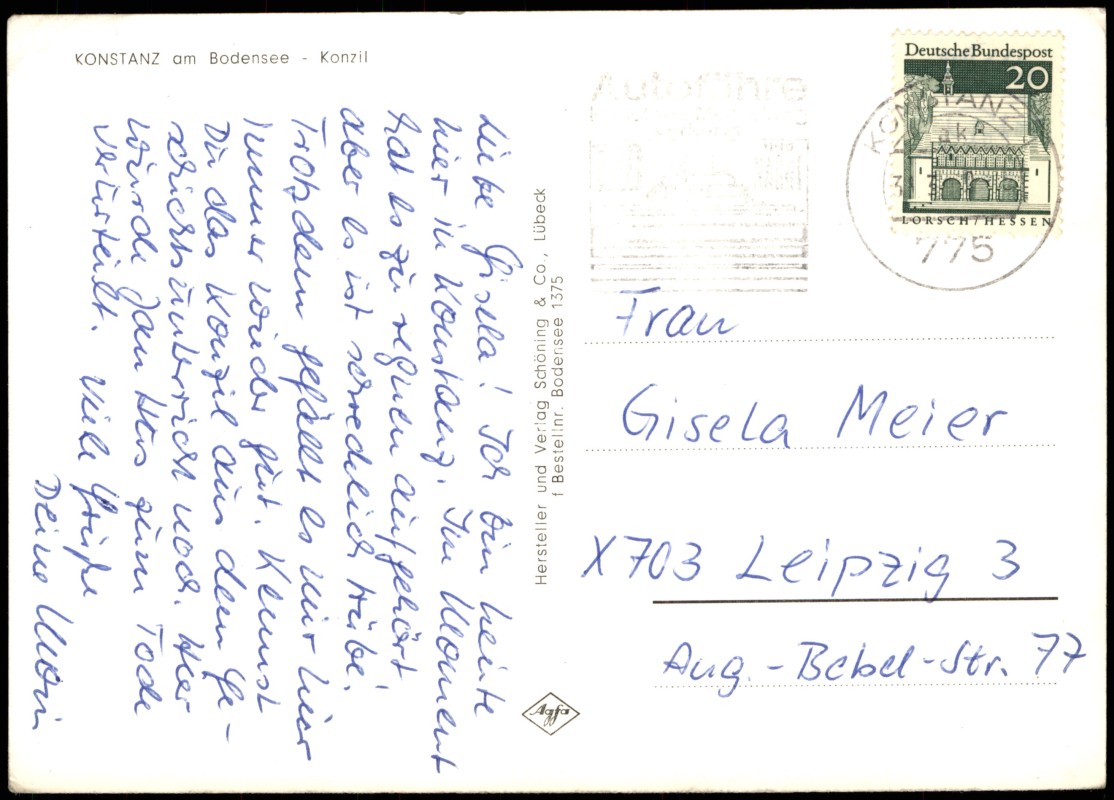 KONSTANZ am Bodensee - Konzil
Liebe Gisela! Ich bin heute
hier in Konstanz. Im Moment
hat es zu regnen aufgehört
aber es ist schrecklich trübe!
Trotzdem gefällt es mir hier
immer wieder gut. Kennst
Du das Konzil aus dem Ge-
schichtsunterricht noch. Hier
wurde Jan Hus zum Tode
verurteilt. Viele Grüße
Deine
Hersteller und Verlag Schöning & Co., Lübeck
f Bestellnr. Bodensee 1375
Agfa
Autofähre
Deutsche Bundespost
20
LORSCH/HESSEN
KONSTANZ
775
Frau
Gisela Meier
X703 Leipzig 3
Aug.-Bebel-Str. 77